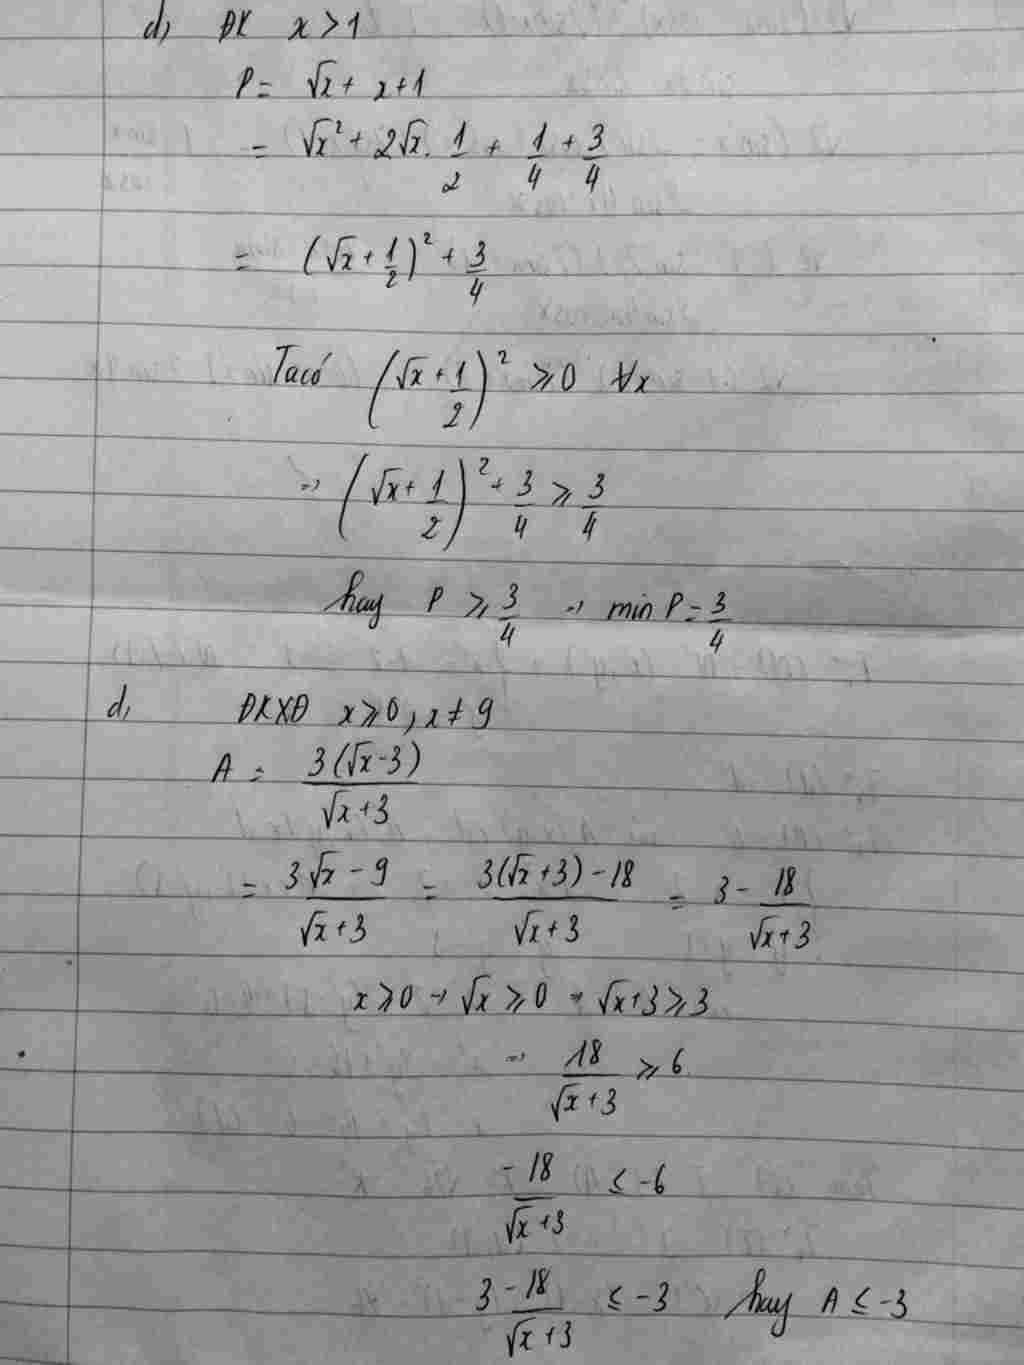 d, ĐK x > 1
P = √x + x + 1
= √x² + 2√x . 1/2 + 1/4 + 3/4
= (√x + 1/2)² + 3/4
Ta có (√x + 1/2)² ⩾ 0 ∀x
⇒ (√x + 1/2)² + 3/4 ⩾ 3/4
hay P ⩾ 3/4 ⇒ min P = 3/4
d, ĐKXĐ x ⩾ 0, x ≠ 9
A = 3(√x - 3)/(√x + 3)
= (3√x - 9)/(√x + 3) = (3(√x + 3) - 18)/(√x + 3) = 3 - 18/(√x + 3)
x ⩾ 0 → √x ⩾ 0 → √x + 3 ⩾ 3
⇒ 18/(√x + 3) ⩾ 6
-18/(√x + 3) ≤ -6
3 - 18/(√x + 3) ≤ -3 hay A ≤ -3